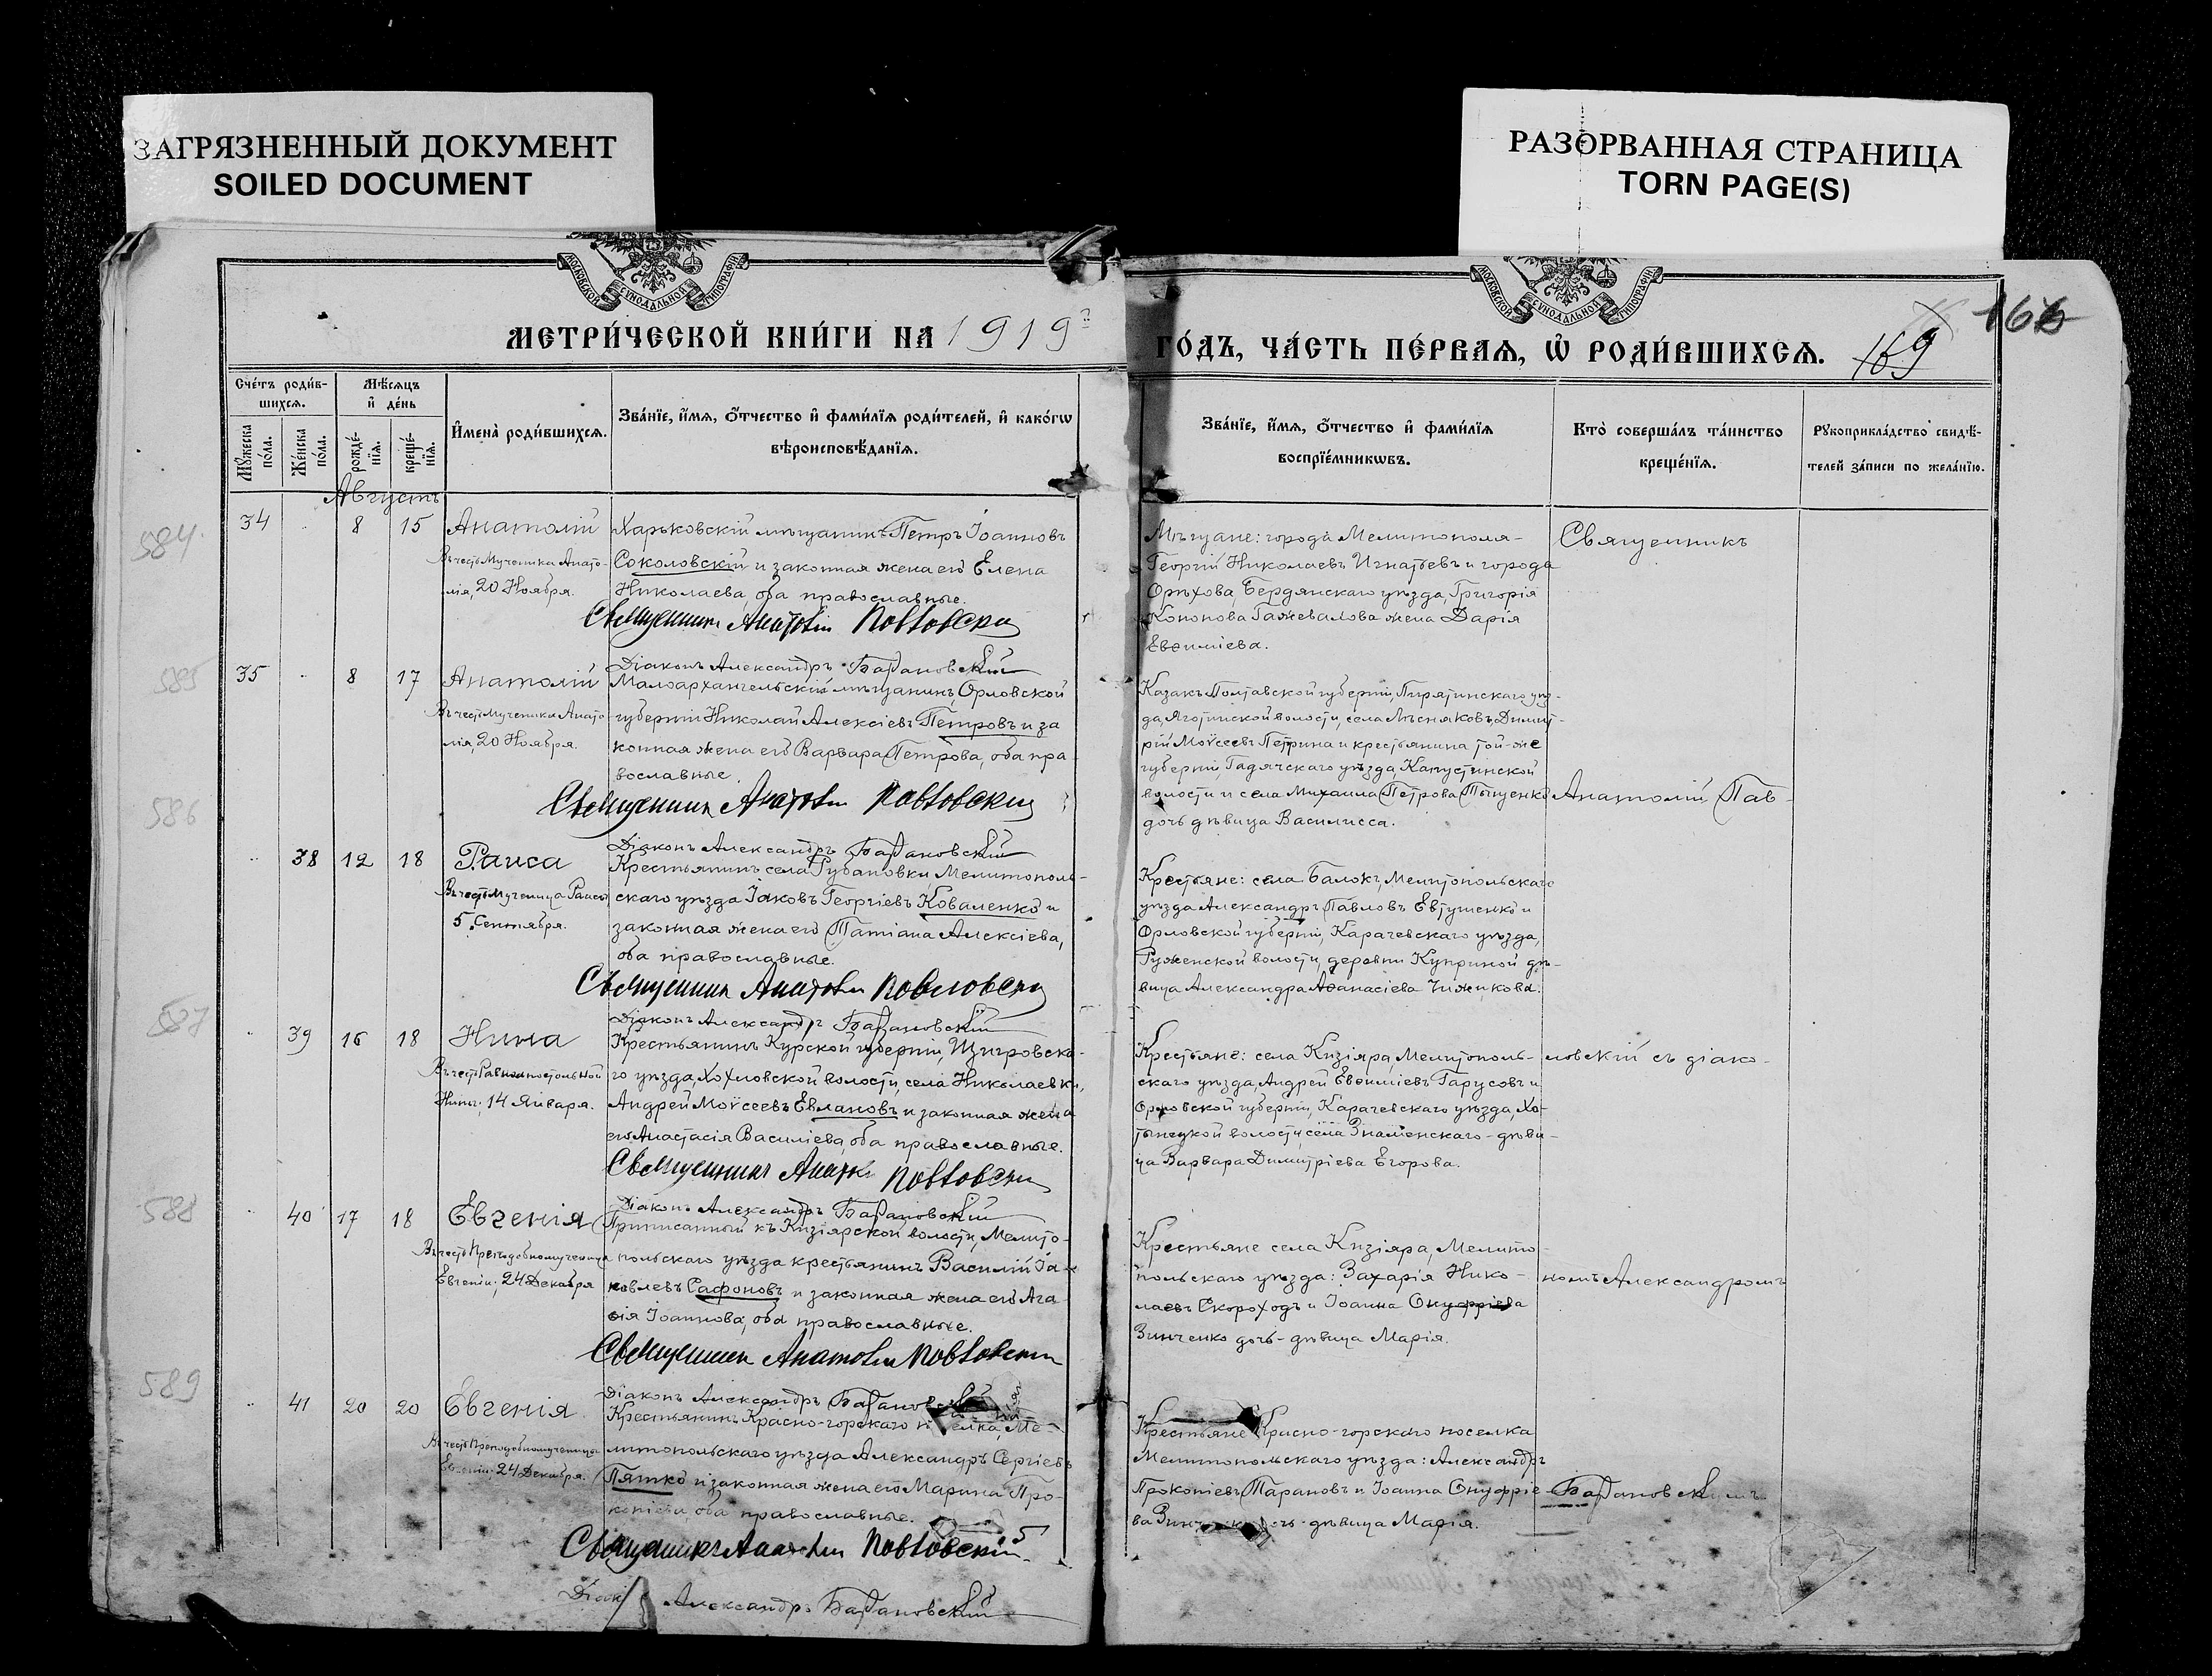 ЗАГРЯЗНЕННЫЙ ДОКУМЕНТ
SOILED DOCUMENT
РАЗОРВАННАЯ СТРАНИЦА
TORN PAGE(S)
МОСКОВСКОЙ СѴНОДАЛЬНОЙ ТИПОГРАФІИ
МОСКОВСКОЙ СѴНОДАЛЬНОЙ ТИПОГРАФІИ
166
МЕТРИ́ЧЕСКОЙ КНИ́ГИ НА 1919
ГО́ДЪ, ЧА́СТЬ ПЕ́РВАЯ, Ѡ҆ РОДИ́ВШИХСЯ. 169
Сче́тъ роди́в-
шихся.
Мѣ́сяцъ
и҆ де́нь
Мꙋ́жеска по́ла.
Же́нска по́ла.
рожде́-
нїя.
креще́-
нїя.
И҆мена̀ роди́вшихся.
Зва́нїе, и҆́мя, ѻ҆́тчество и҆ фами́лїя роди́телей, и҆ како́гѡ
вѣроисповѣ́данїя.
Зва́нїе, и҆́мя, ѻ҆́тчество и҆ фами́лїя
воспрїе́мникѡвъ.
Кто̀ соверша́лъ та́инство
креще́нїя.
Рꙋкоприкла́дство свидѣ́-
телей за́писи по жела́нїю.
Августъ
584.
34 8 15 Анатолій
Въ честь Мученика Анато-
лія, 20 Ноября.
Харьковскій мѣщанинъ Петръ Іоанновъ
Соколовскій и законная жена его Елена
Николаева, оба православные.
Священникъ Анатолій Павловскій
Діаконъ Александръ
Мѣщане: города Мелитополя-
Георгій Николаевъ Игнатьевъ и города
Орѣхова, Бердянскаго уѣзда, Григорія
Кононова жена Дарія
Евѳиміева.
Священникъ
585
35 8 17 Анатолій
Въ честь Мученика Анато-
лія, 20 Ноября.
Малоархангельскій мѣщанинъ, Орловской
губерніи Николай Алексіевъ Петровъ и за
конная жена его Варвара Петрова, оба пра-
вославные.
Священникъ Анатолій Павловскій
Діаконъ Александръ
Казакъ Полтавской губерніи, Пирятинскаго уѣз-
да, Яготинской волости, села Лѣсняковъ, Димит-
рій Моѵсеевъ Петрина и крестьянина той-же
губерніи, Гадячскаго уѣзда, Капустинской
волости и села Михаила Петрова
дочь дѣвица Василисса.
Анатолій Пав-
586
38 12 18 Раиса
Въ честь Мученица Раисы
5 Сентября.
Крестьянинъ села Рубановки Мелитополь-
скаго уѣзда Іаковъ Георгіевъ Коваленко и
законная жена его Татіана Алексіева,
оба православные.
Священникъ Анатолій Павловскій
Діаконъ Александръ
Крестьяне: села Балокъ, Мелитопольскаго
уѣзда Александръ Павловъ Евтушенко и
Орловской губерніи, Карачевскаго уѣзда,
Руженской волости, деревни Куприной дѣ-
вица Александра Аѳанасіева Чижикова.
587
39 16 18 Нина
Въ честь Равноапостольной
Нины, 14 Января.
Крестьянинъ Курской губерніи, Щигровска-
го уѣзда, Хохловской волости, села Николаевки,
Андрей Моѵсеевъ Евлановъ и законная жена
его Анастасія Василіева, оба православные.
Священникъ Анатолій Павловскій
Діаконъ Александръ
Крестьяне: села Кизіяра, Мелитополь-
скаго уѣзда, Андрей Евѳиміевъ Гарусовъ и
Орловской губерніи, Карачевскаго уѣзда, Хо-
тынецкой волости, села Знаменскаго-дѣви-
ца Варвара Димитріева Егорова.
ловскій съ діако-
588
40 17 18 Евгенія
Въ честь Преподобномученицы
Евгеніи, 24 Декабря
Приписанный къ Кизіярской волости, Мелито-
польскаго уѣзда крестьянинъ Василій Іа-
ковлевъ Сафоновъ и законная жена его Ага-
ѳія Іоаннова, оба православные.
Священникъ Анатолій Павловскій
Діаконъ Александръ
Крестьяне села Кизіяра, Мелито-
польскаго уѣзда: Захарія Нико-
лаевъ Скороходъ и Іоанна Онуфріева
Зинченко дочь-дѣвица Марія.
номъ Александромъ
589
41 20 20 Евгенія
Въ честь Преподобномученицы
Евгеніи, 24 Декабря.
Крестьянинъ Красно-горскаго Ме-
литопольскаго уѣзда Александръ Сергіевъ
Пятко и законная жена его Марина Про-
оба православные.
Священникъ Анатолій Павловскій
Александръ
Крестьяне Красно-горскаго поселка
Мелитопольскаго уѣзда: Александръ
Прокопіевъ Тарановъ и Іоанна Онуфріе-
ва дѣвица Марія.